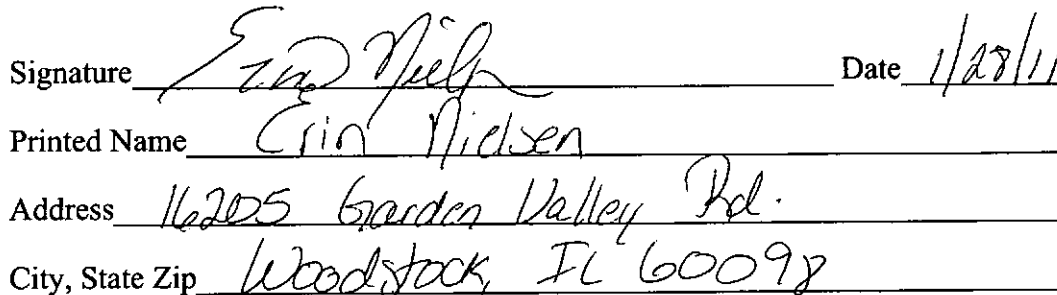 Signature Erin Nielsen Date 1/28/11
Printed Name Erin Nielsen
Address 16205 Garden Valley Rd.
City, State Zip Woodstock, IL 60098